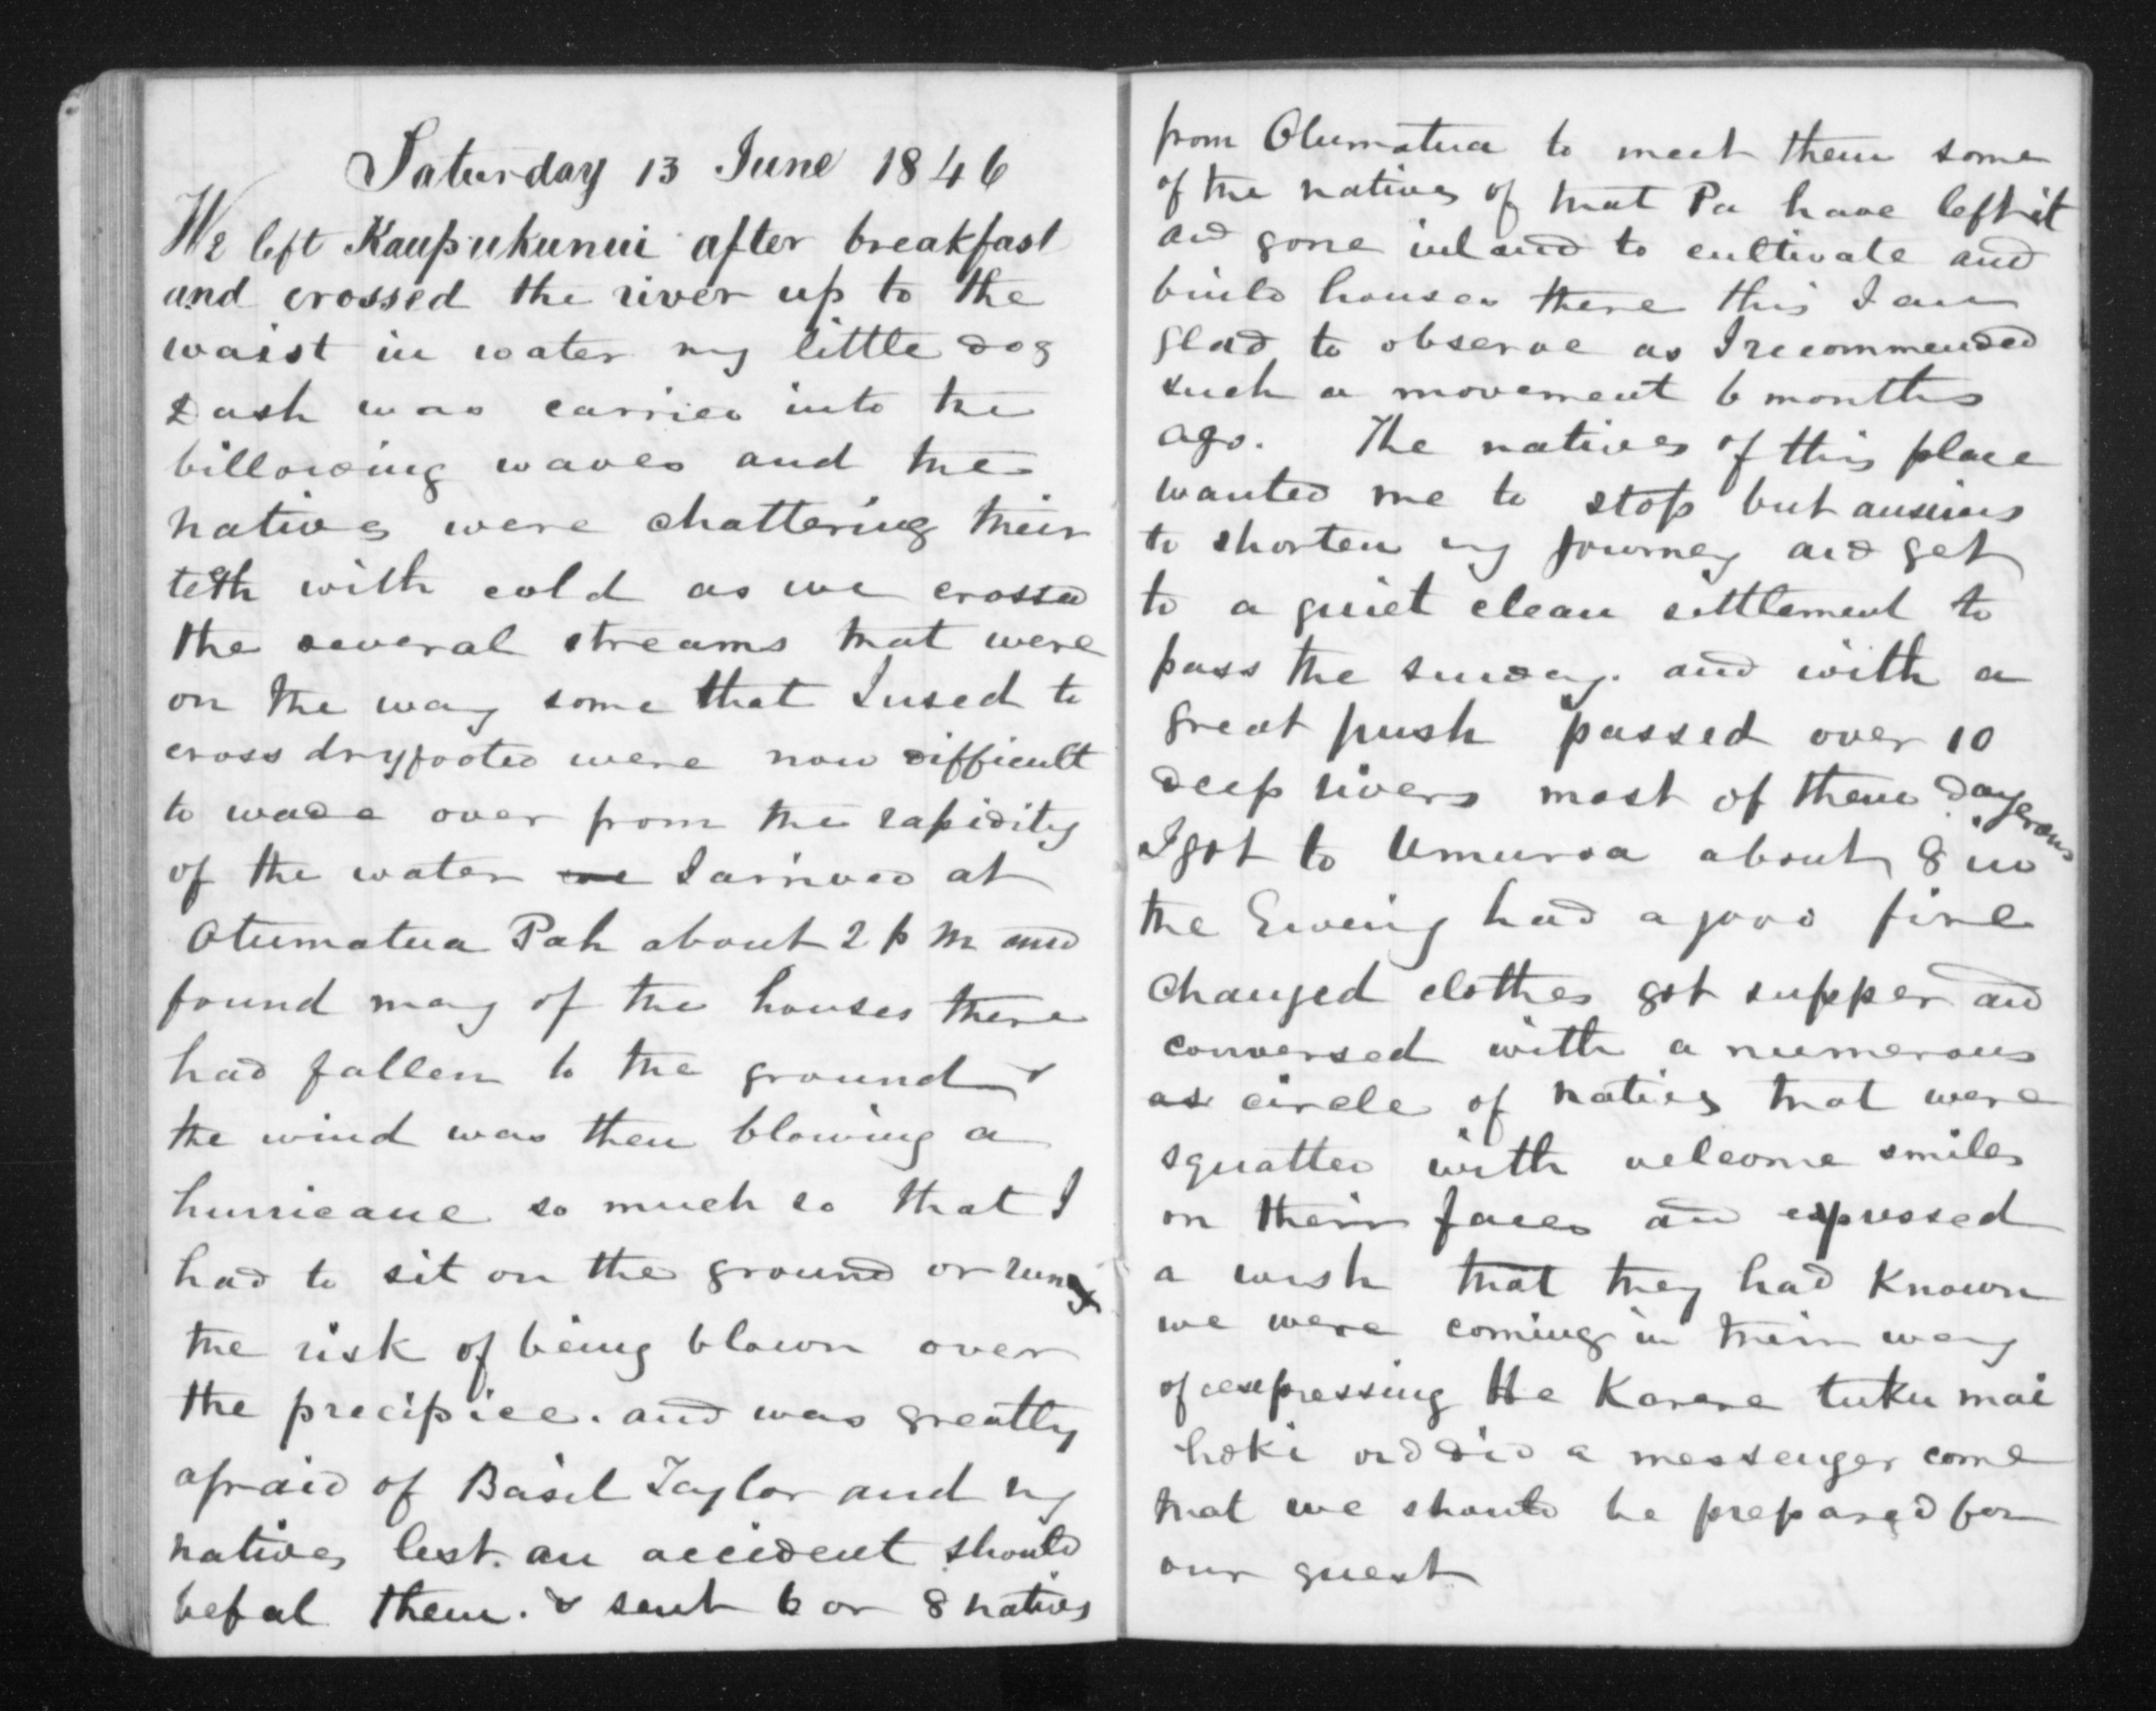 Saturday 13 June 1846
We left Kaupukunui after breakfast
and crossed the river up to the
waist in water my little dog
Dash was carried into the
billowing waves and the
natives were chattering their
teth with cold as we crossed
the several streams that were
on the way some that I used to
cross dryfooted were now difficult
to wade over from the rapidity
of the water I arrived at
Otumatua Pah about 2 p m and
found many of the houses there
had fallen to the ground &
the wind was then blowing a
hurricane so much so that I
had to sit on the ground or run
the risk of being blown over
the precipice. and was greatly
afraid of Basil Taylor and my
natives lest. an accident should
befal them. & sent 6 or 8 natives
from Otumatua to meet them some
of the natives of that Pa have left it
and gone inland to cultivate and
build houses there this I am
glad to observe as I recommended
such a movement 6 months
ago. The natives of this place
wanted me to stop but anxious
to shorten my journey and get
to a quiet clean settlement to
pass the sunday. and with a
great push passed over 10
deep rivers most of them dangerous
I got to Umuroa about 8 in
the Evening had a good fire
changed clothes got supper and
conversed with a numerous
as circle of natives that were
squatted with welcome smiles
on their faces and expressed
a wish that they had known
we were coming in their way
of expressing He Karere tuku mai
hoki did a messenger come
that we should be prepared for
our guest